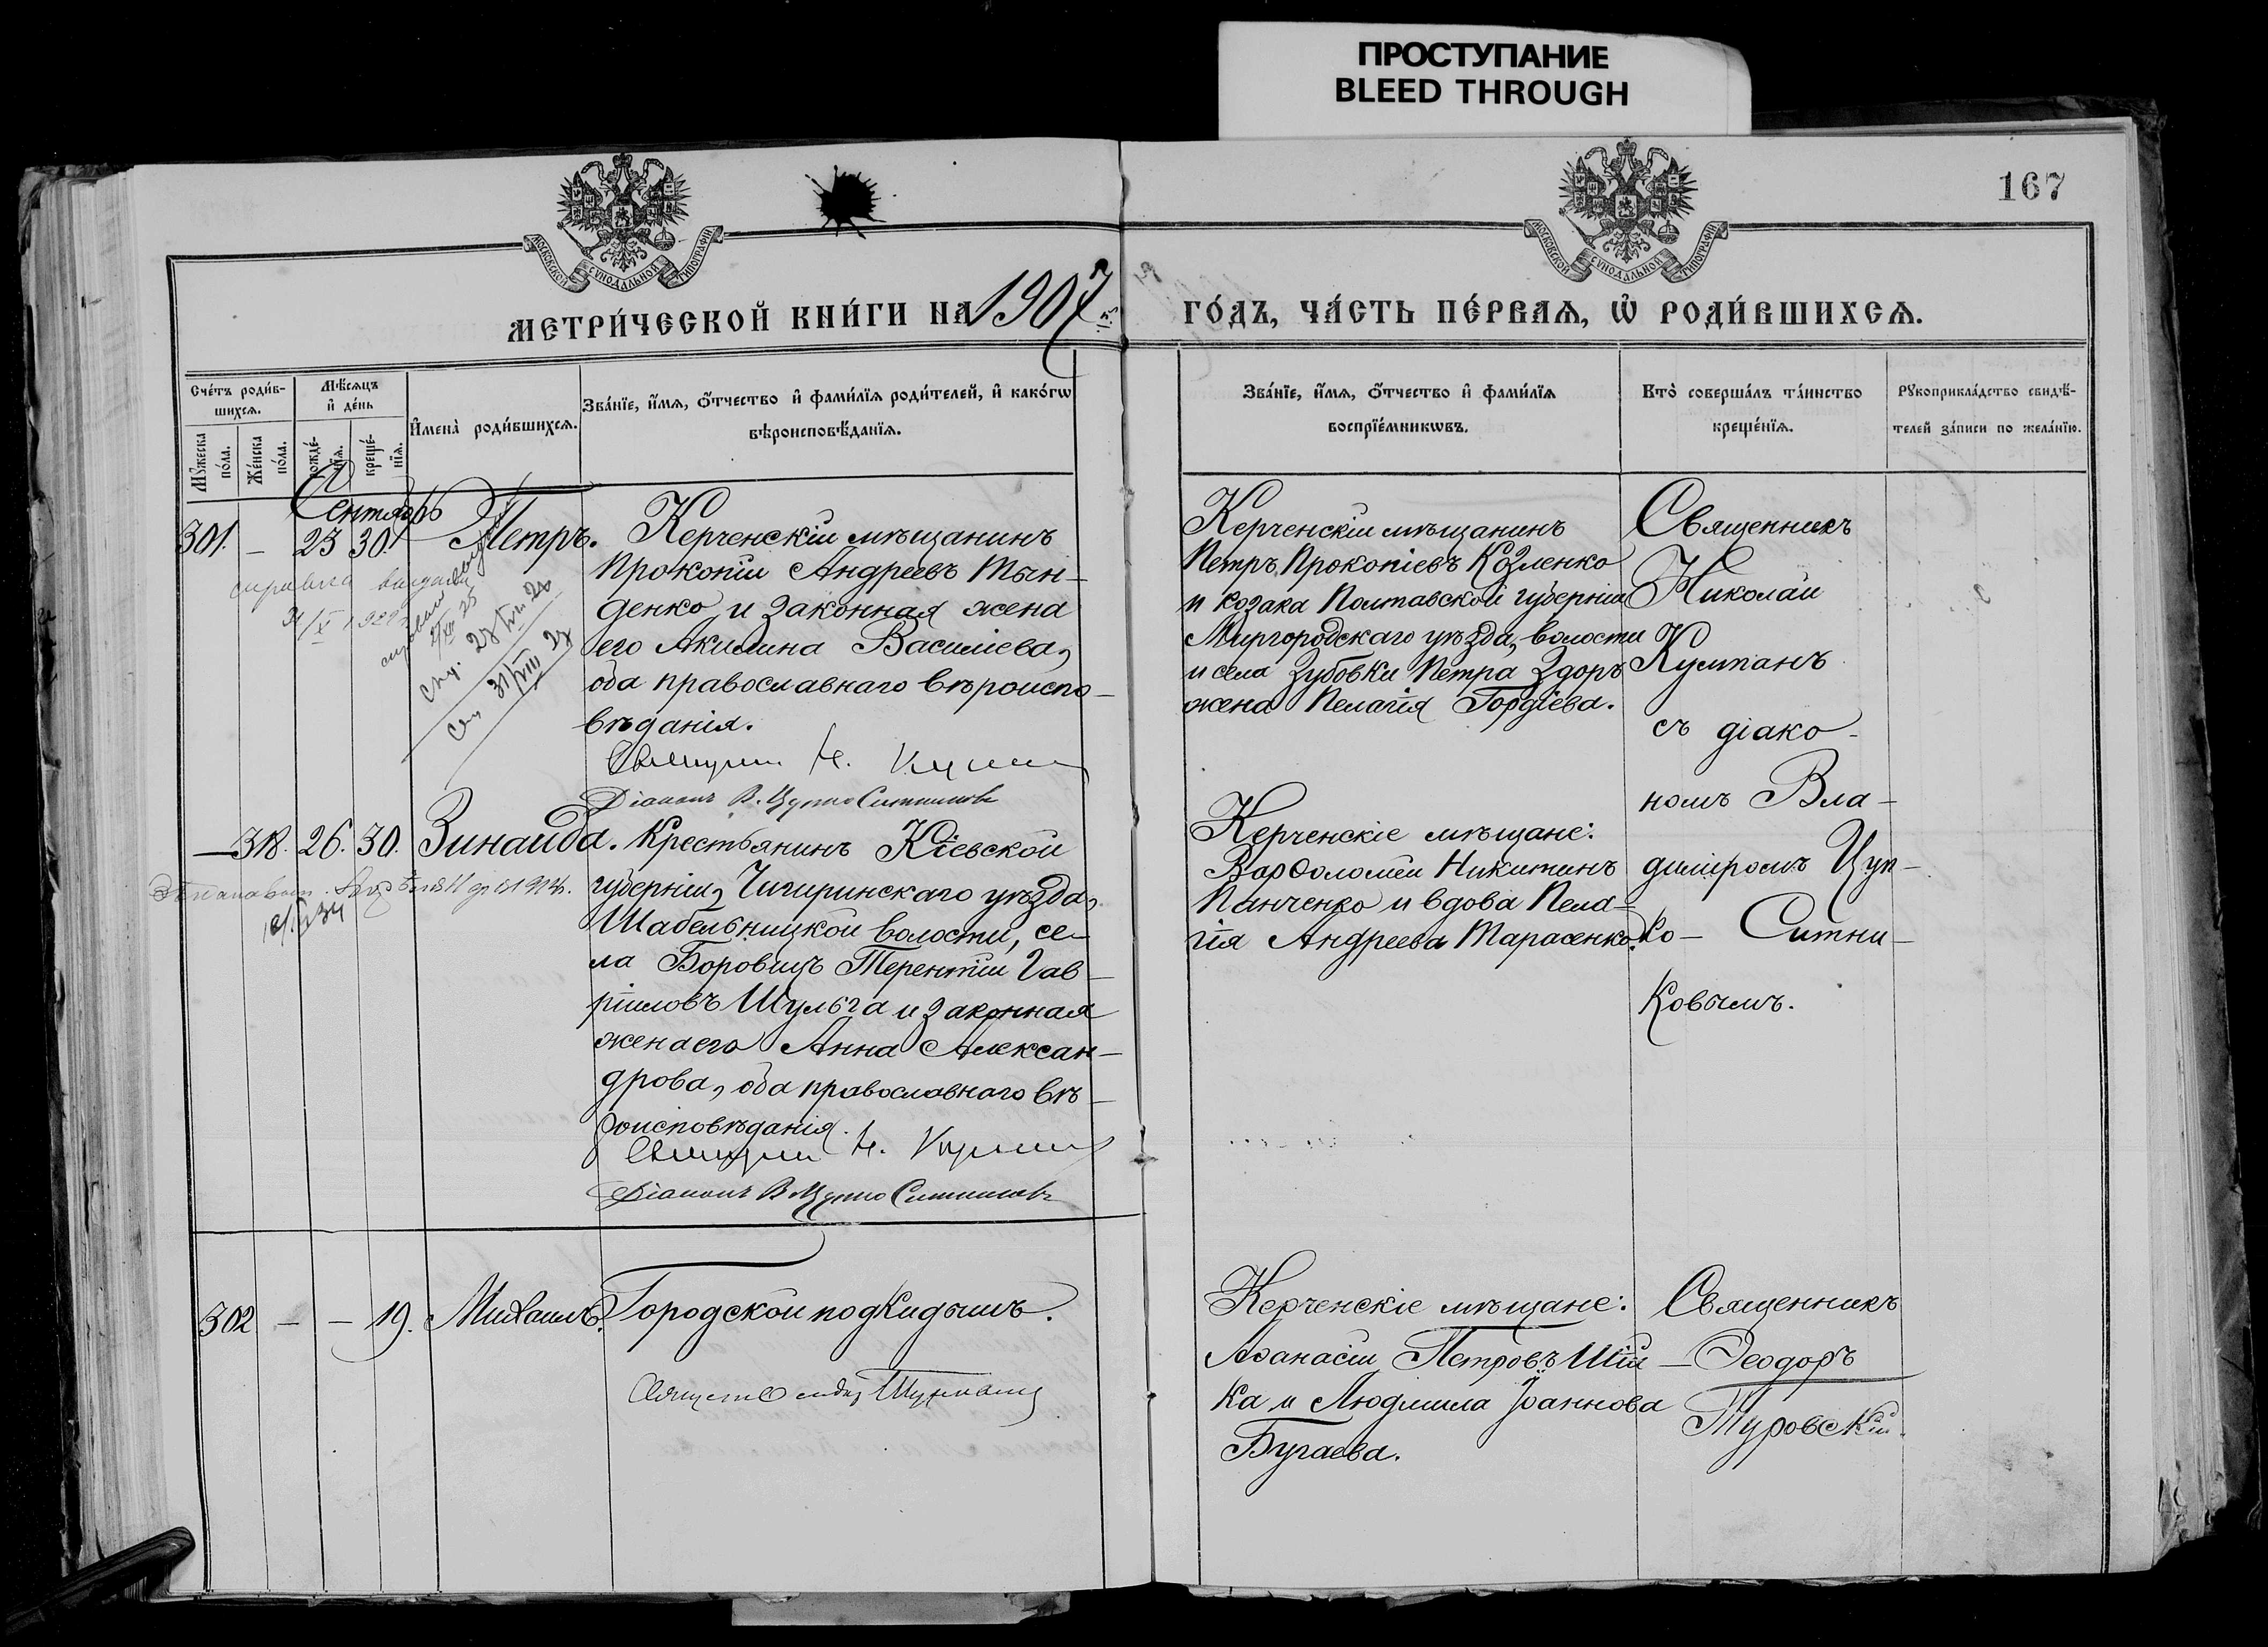 ПРОСТУПАНИЕ
BLEED THROUGH
167
МОСКОВСКОЙ СУНОДАЛЬНОЙ ТИПОГРАФІИ
МОСКОВСКОЙ СУНОДАЛЬНОЙ ТИПОГРАФІИ
МЕТРИ́ЧЕСКОЙ КНИ́ГИ НА 1907 г.
ГО́ДЪ, ЧА́СТЬ ПЕ́РВАѦ, Ѡ҆ РОДИ́ВШИХСѦ.
Сче́тъ роди́в-
шихсѧ.
Мꙋжеска по́ла.
Же́нска по́ла.
Мѣ́сѧцъ
и҆ де́нь
рожде́-
нїѧ.
креще́-
нїѧ.
И҆мена̀ роди́вшихсѧ.
Зва́нїе, и҆́мѧ, ѻ҆́тчество и҆ фами́лїѧ роди́телей, и҆ како́гѡ
вѣроисповѣ́данїѧ.
Зва́нїе, и҆́мѧ, ѻ҆́тчество и҆ фами́лїѧ
воспрїе́мникѡвъ.
Кто̀ соверша́лъ та́инство
креще́нїѧ.
Рꙋкоприкла́дство свидѣ́-
телей за́писи по жела́нїю.
Сентябрь
301. — 23 30. Петръ.
Керченскій мѣщанинъ
Прокопій Андреевъ Тын-
денко и законная жена
его Акилина Василіева,
оба православнаго вѣроиспо-
вѣданія.
Священникъ Н. Кулпанъ
Діаконъ В. Цупко Ситниковъ
Керченскій мѣщанинъ
Петръ Прокопіевъ Козленко
и козака Полтавской губерніи
Миргородскаго уѣзда, волости
и села Зубовки Петра Здоръ
жена Пелагія Гордіева.
Священникъ
Николай
Кулпанъ
съ діако-
номъ Вла-
диміромъ Цуп-
ко- Ситни-
ковымъ.
справка выдана
31/X 192
27/XII 25
спр. 28/VIII 28
спр. 31/VIII 28
— 318. 26. 30. Зинаида.
Крестьянинъ Кіевской
губерніи, Чигиринскаго уѣзда,
Шабельницкой волости, се-
ла Боровицъ Терентій Гав-
ріиловъ Шульга и законная
жена его Анна Алексан-
дрова, оба православнаго вѣ-
роисповѣданія.
Священникъ Н. Кулпанъ
Діаконъ В. Цупко Ситниковъ
Керченскіе мѣщане:
Варѳоломей Никитинъ
Панченко и вдова Пела-
гія Андреева Тарасенко.
302 — — 19. Михаилъ.
Городской подкидышъ.
Керченскіе мѣщане:
Аѳанасій Петровъ Ший-
ка и Людмила Іоаннова
Бугаева.
Священникъ
Ѳеодоръ
Туровскій.